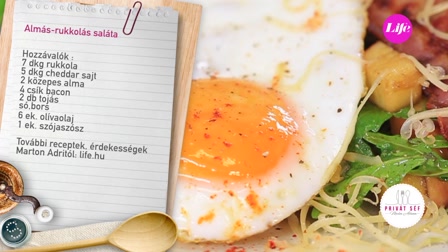 Almás-rukkolás saláta
Hozzávalók :
7 dkg rukkola
5 dkg cheddar sajt
2 közepes alma
4 csík bacon
2 db tojás
só,bors
6 ek. olívaolaj
1 ek. szójaszósz
További receptek, érdekességek
Marton Adritól: life.hu
Life
PRIVÁT SÉF